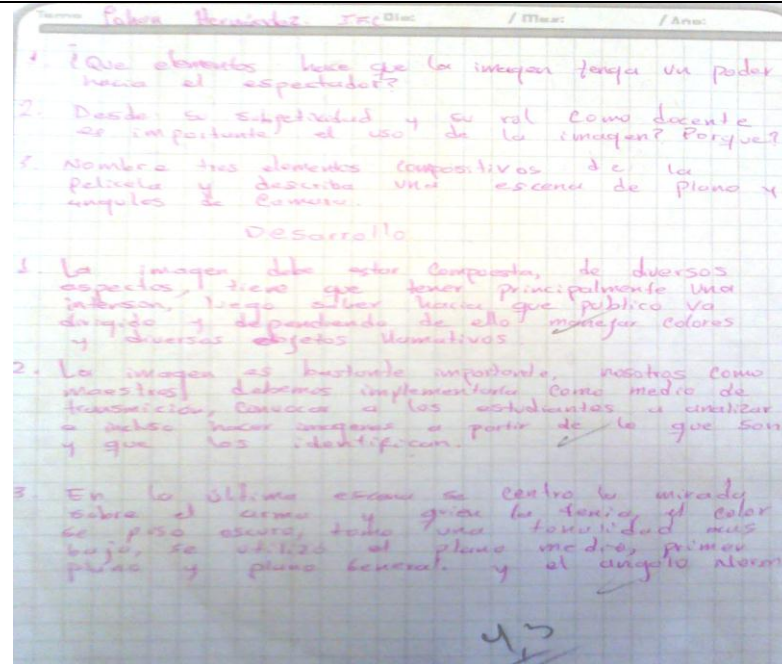 Hernandez. Dia: / Mes: / Ano:
1. ¿Que elementos hace que la imagen tenga un poder
hacia el espectador?
2. Desde su subjetividad y su rol como docente
es importante el uso de la imagen? Porque?
3. Nombre tres elementos compositivos de la
pelicula y describa una escena de plano y
angulos de
Desarrollo
1. La imagen debe estar compuesta, de diversos
aspectos, tiene que tener principalmente una
luego saber hacia que publico va
dirigido y dependiendo de ello manejar colores
y diversos objetos llamativos
2. La imagen es bastante importante, nosotros como
maestros debemos implementarla como medio de
transmición, convocar a los estudiantes a analizar
o incluso hacer imagenes a partir de lo que son
y que los identifican.
3 En la última escena se centro la mirada
sobre el arma y quien la tenia, el color
se puso oscuro, tomo una tonalidad mas
baja, se utilizo el plano medio, primer
plano y plano General. y el angulo Norm